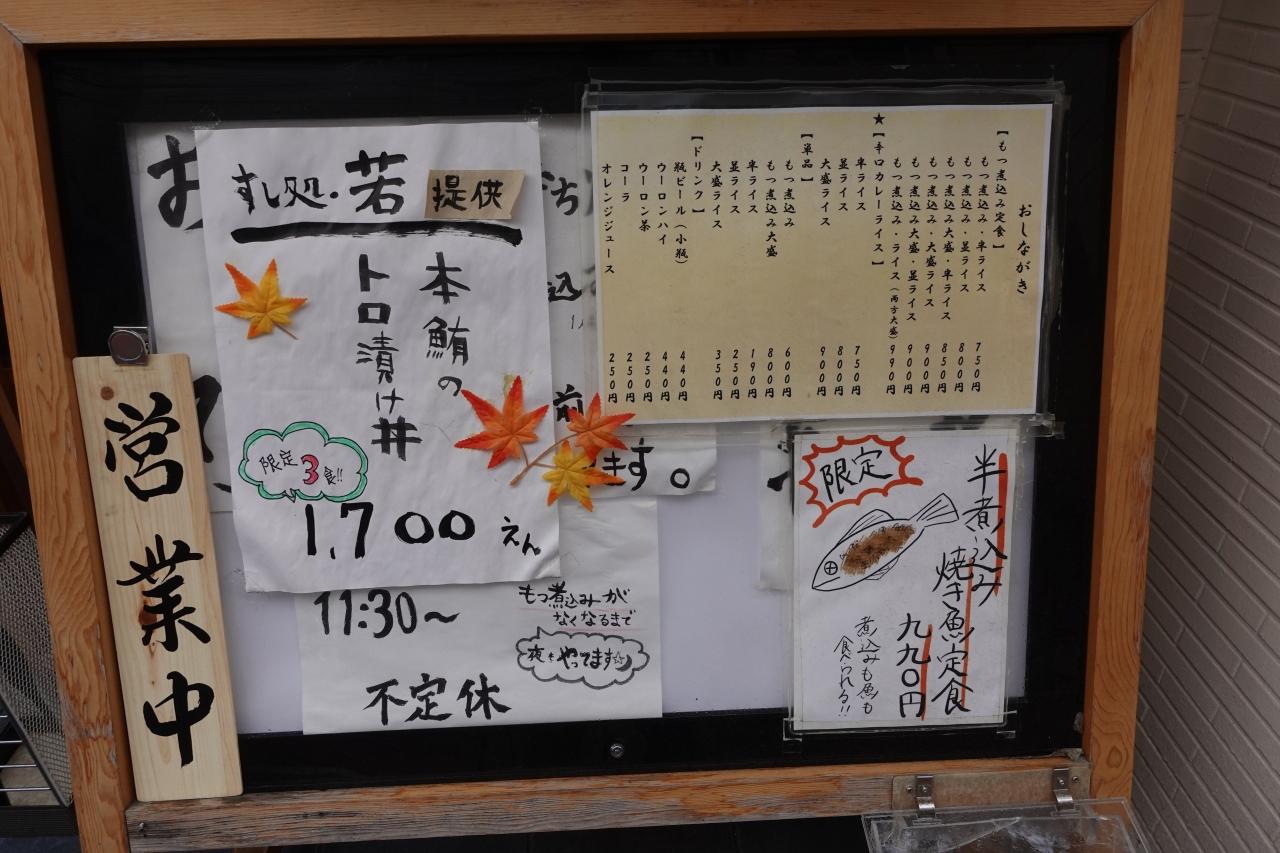 すし処・若 提供
本鮪の
トロ漬け丼
限定3食!!
1,700えん
11:30〜
不定休
もつ煮込みーが
なくなるまで
夜もやってます☆
営業中
おしながき
【もつ煮込み定食】
もつ煮込み・半ライス 750円
もつ煮込み・並ライス 800円
もつ煮込み大盛・半ライス 850円
もつ煮込み・大盛ライス 900円
もつ煮込み大盛・並ライス 900円
もつ煮込み・ライス(両方大盛) 990円
★【辛口カレーライス】
半ライス 750円
並ライス 800円
大盛ライス 900円
【単品】
もつ煮込み 600円
もつ煮込み大盛 800円
半ライス 190円
並ライス 250円
大盛ライス 350円
【ドリンク】
瓶ビール(小瓶) 440円
ウーロンハイ 440円
ウーロン茶 250円
コーラ 250円
オレンジジュース 250円
限定
半煮込み
焼き魚定食
九九〇円
煮込みも魚も
食べられる!!
お
ます。